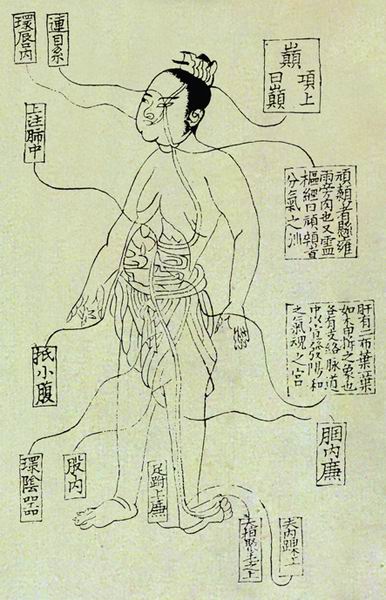 環唇內
連目系
巔
項上
曰巔
上注肺中
頏顙者有懸雍
兩旁肉也又靈
樞經曰頏顙者
分氣之
肝有二布葉葉
如木甲拆之象也
各有支絡脉道
中以宣發陽和
之氣魂之官
抵小腹
膕內廉
環陰器
股內
足跗上廉
大指聚毛之上
去內踝一寸